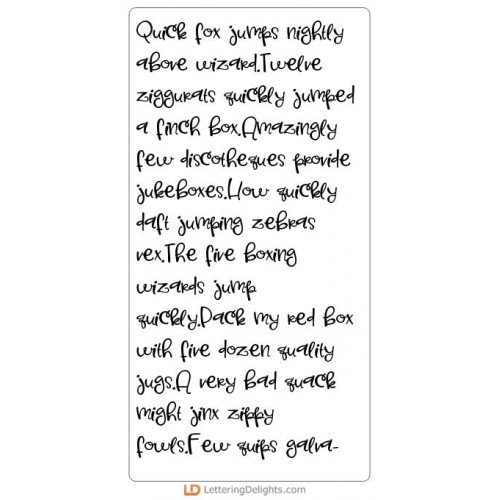 Quick fox jumps nightly
above wizard.Twelve
ziggurats quickly jumped
a finch box.Amazingly
few discotheques provide
jukeboxes.How quickly
daft jumping zebras
vex.The five boxing
wizards jump
quickly.Pack my red box
with five dozen quality
jugs.A very bad quack
might jinx zippy
fowls.Few quips galva-
LD LetteringDelights.com